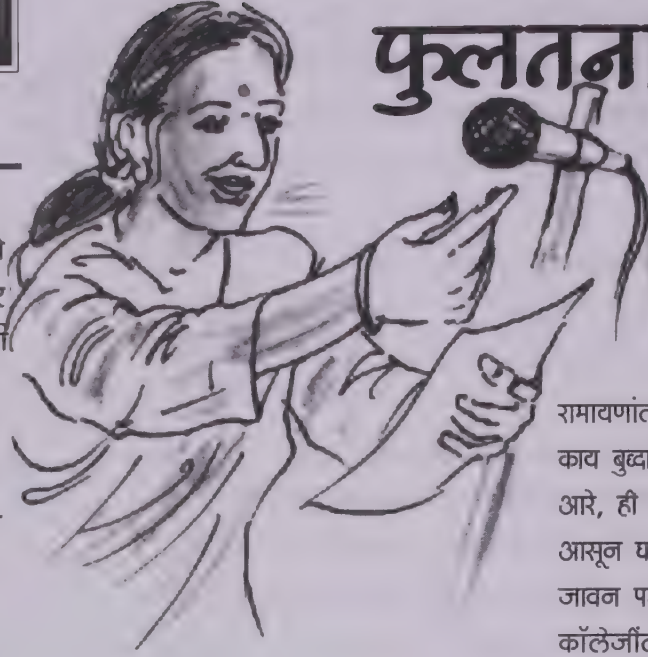 फुलतन
रामायणांत
काय बुध्दा
आरे, ही
आसून घ
जावन प
कॉलेजींत